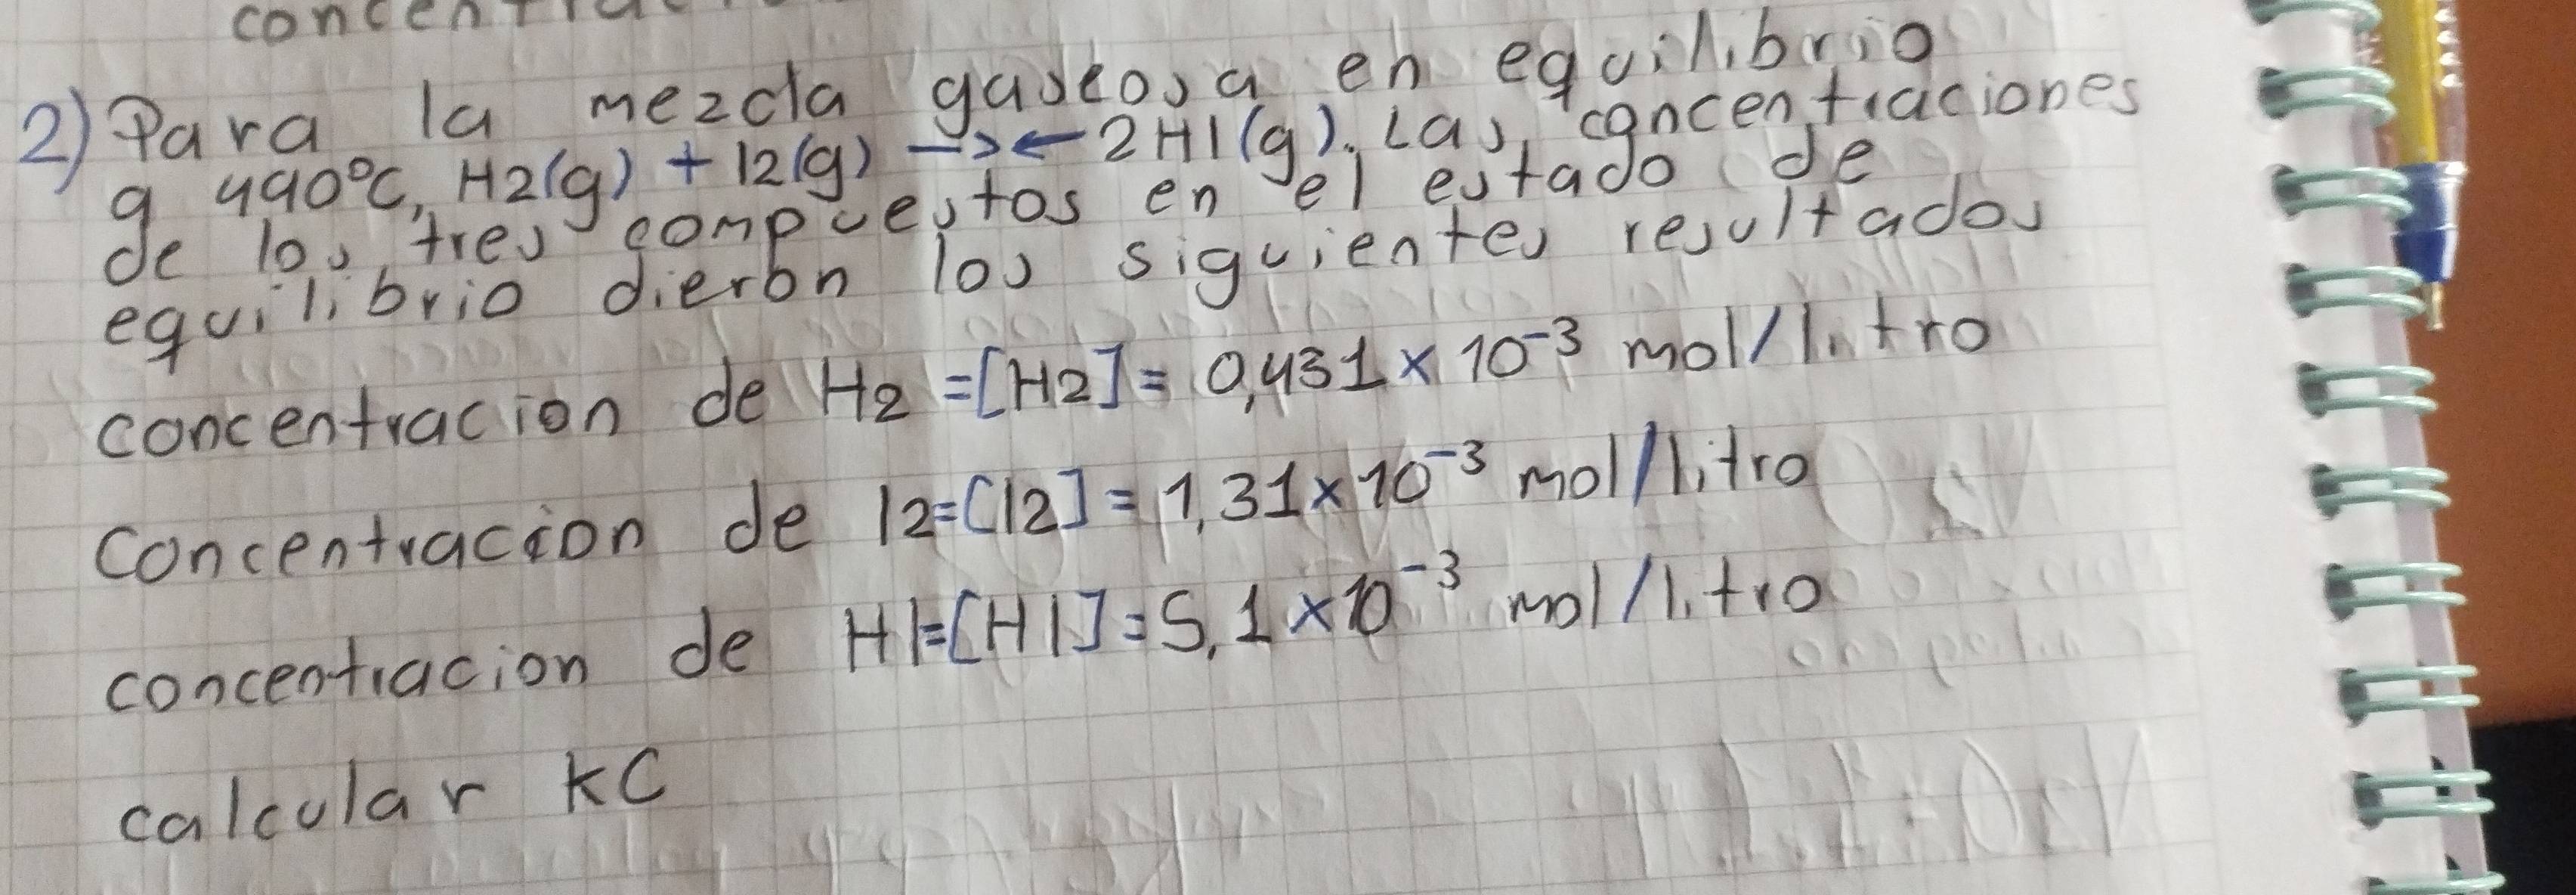 concentrac
2) Para la mezcla gaseosa en equilibrio
a 490°C, H2(g) + I2(g) →← 2HI(g). Las concentraciones
de los tres compuestos en el estado de
equilibrio dieron los siguientes resultados
concentracion de H2 =[H2]= 0,431 x 10⁻³ mol/litro
concentracion de I2=[I2]= 1,31x10⁻³ mol/litro
concentracion de HI=[HI]=5,1 x10⁻³ mol/litro
calcular KC